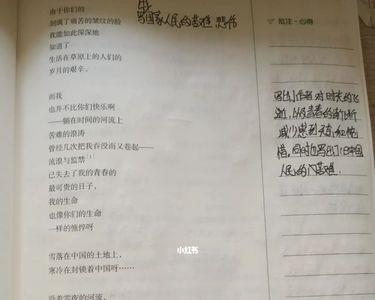 与国家人民的苦难 悲伤
由于你们的
刻满了痛苦的皱纹的脸
我能如此深深地
知道了
生活在草原上的人们的
岁月的艰辛。
而我
也并不比你们快乐啊
——躺在时间的河流上
苦难的浪涛
曾经几次把我吞没而又卷起——
流浪与监禁
已失去了我的青春的
最可贵的日子,
我的生命
也像你们的生命
一样的憔悴呀
雪落在中国的土地上,
寒冷在封锁着中国呀……
沿着雪夜的河流,
批注·心得
写出作者对时光的飞
逝,以及青春的渐渐
减少感到无奈和惋
惜,同时也写出了旧中国
人民的苦难.
小红书